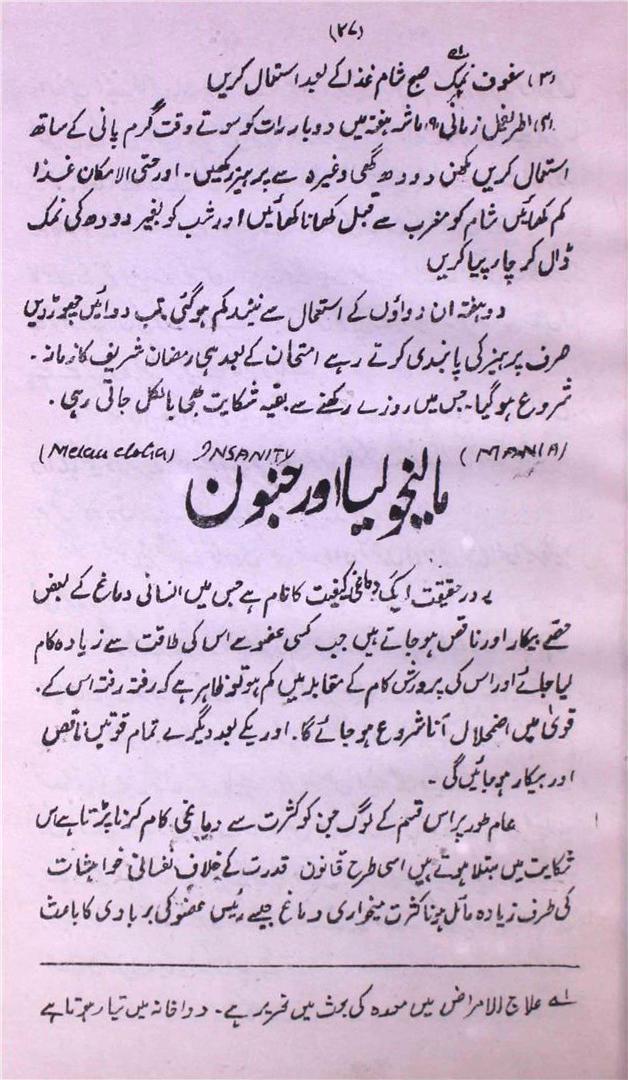 (۲۷)
(۳) سفوف نمک ؎۱ صبح شام غذا کے بعد استعمال کریں
(۴) اطریفل زمانی ۹ ماشہ ہفتہ میں دو بار رات کو سوتے وقت گرم پانی کے ساتھ
استعمال کریں مکھن دودھ گھی وغیرہ سے پرہیز رکھیں۔ اور حتی الامکان غذا
کم کھائیں شام کو مغرب سے قبل کھانا کھائیں اور شب کو بغیر دودھ کی نمک
ڈال کر چار پیا کریں
دو ہفتہ ان دواؤں کے استعمال سے نیند کم ہوگئی تب دوائیں چھوڑ دیں
صرف پرہیز کی پابندی کرتے رہے امتحان کے بعد ہی رمضان شریف کا زمانہ۔
شروع ہوگیا۔ جس میں روزے رکھنے سے بقیہ شکایت بھی بالکل جاتی رہی۔
(MANIA) INSANITY (Melancholia)
مالیخولیا اور جنون
یہ درحقیقت ایک دماغی کیفیت کا نام ہے جس میں انسانی دماغ کے بعض
حصے بیکار اور ناقص ہوجاتے ہیں جب کسی عضو سے اس کی طاقت سے زیادہ کام
لیا جائے اور اس کی پرورش کام کے مقابلہ میں کم ہو تو ظاہر ہے کہ رفتہ رفتہ اس کے۔
قویٰ میں اضمحلال آنا شروع ہوجائے گا۔ اور یکے بعد دیگرے تمام قوتیں ناقص
اور بیکار ہوجائیں گی۔
عام طور پر اس قسم کے لوگ جن کو کثرت سے دماغی کام کرنا پڑتا ہے اس
شکایت میں مبتلا ہوتے ہیں اسی طرح قانون قدرت کے خلاف نفسانی خواہشات
کی طرف زیادہ مائل ہونا کثرت میخواری دماغ جیسے رئیس عضو کی بربادی کا باعث
؎۱ علاج الامراض میں معدہ کی بحث میں تحریر ہے۔ دواخانہ میں تیار ہوتا ہے